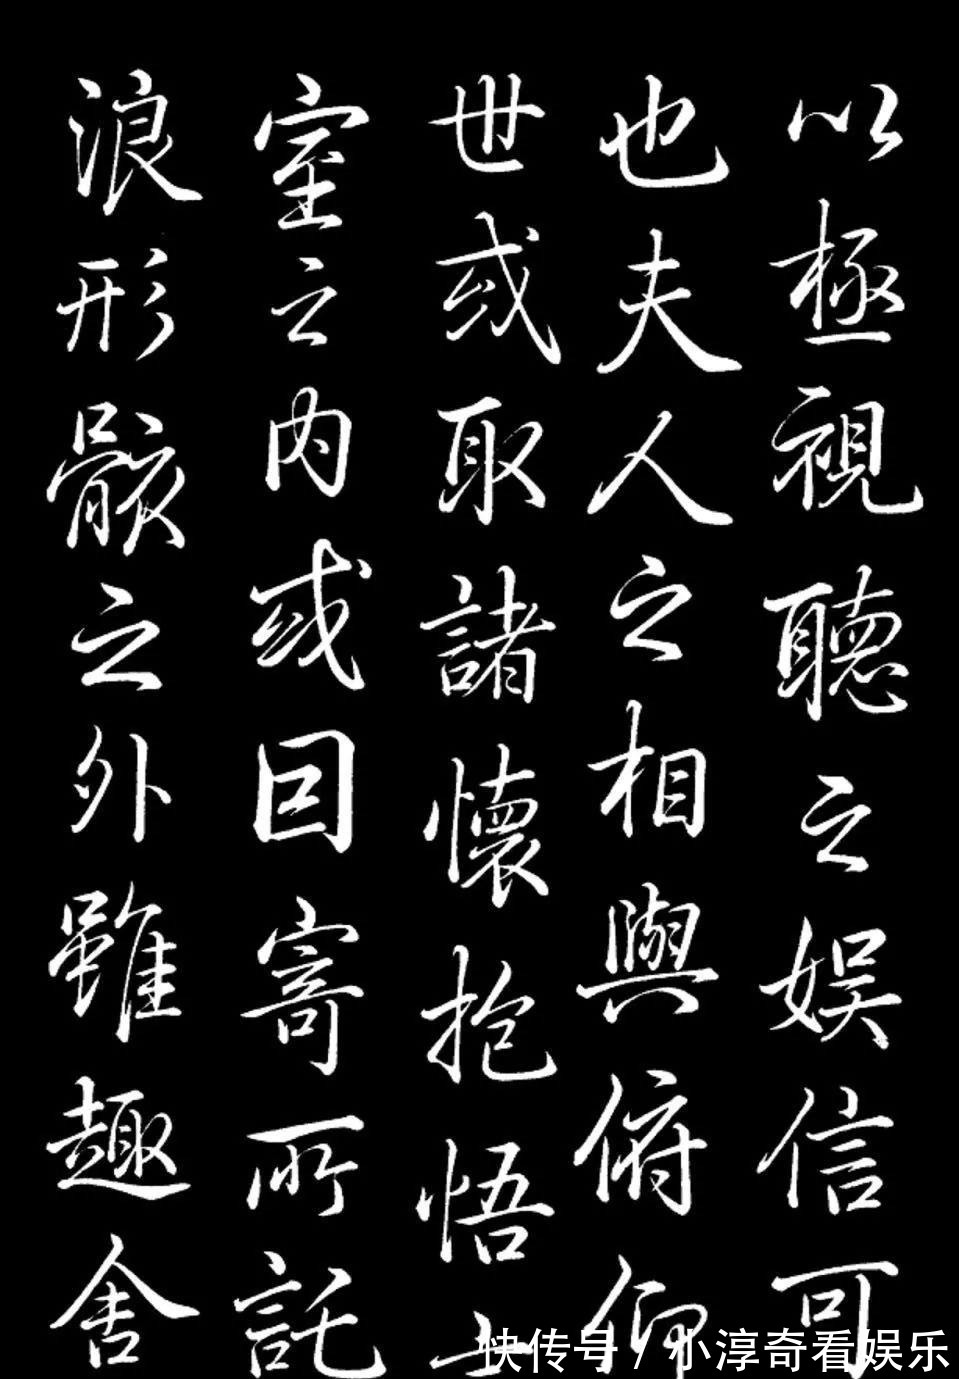 以極視聽之娛信可
也夫人之相與俯仰
世或取諸懷抱悟
室之内或因寄所託
浪形骸之外雖趣舍
快传号 / 小淳奇看娱乐